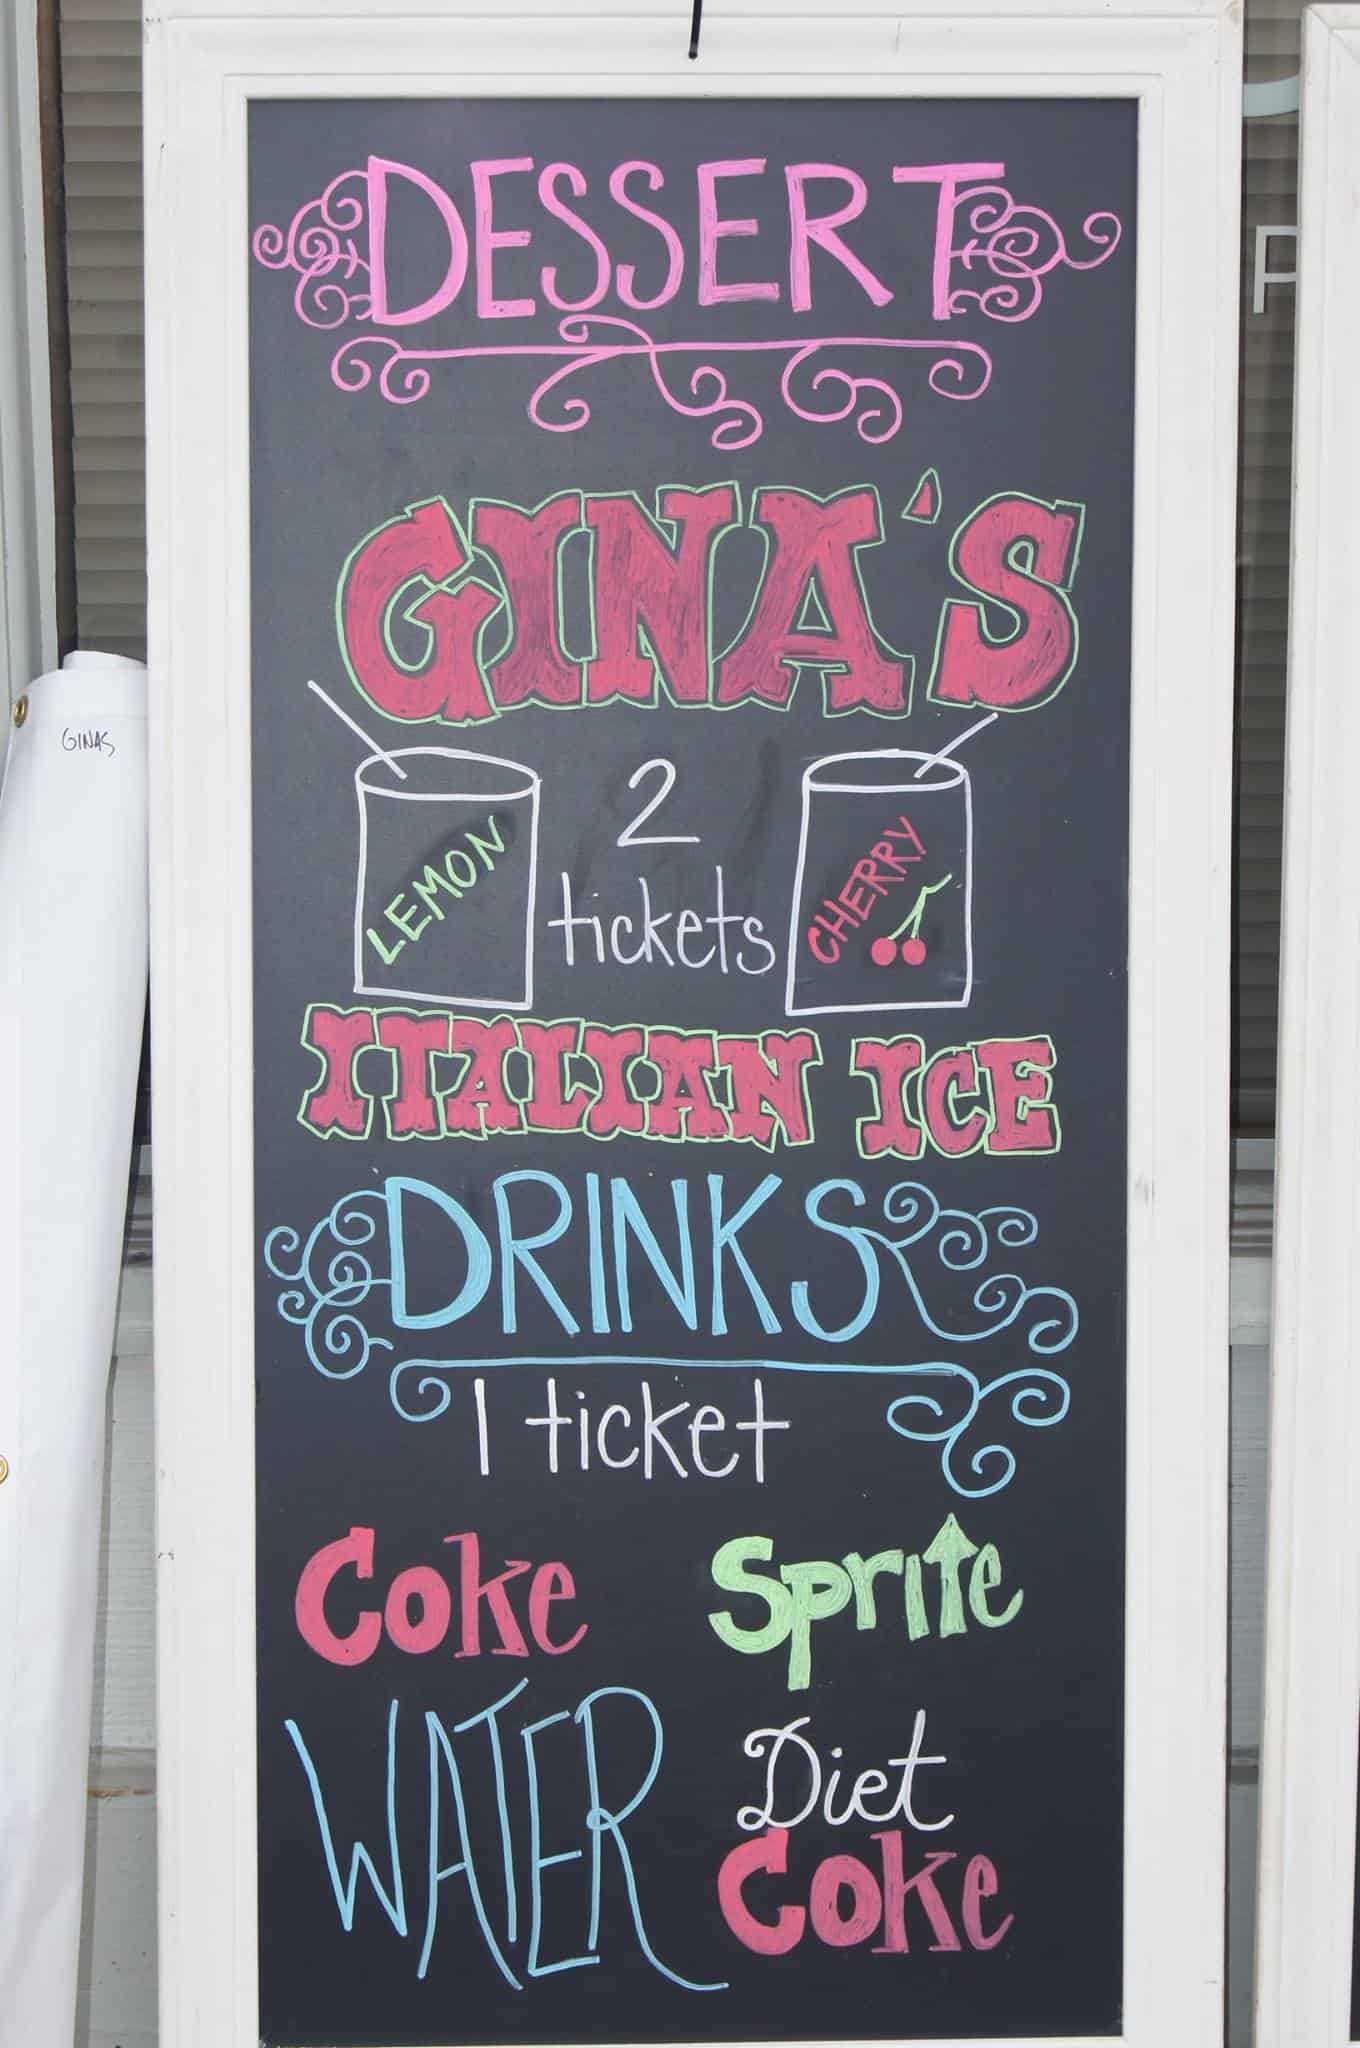 DESSERT
GINA'S
GINAS
2
tickets
LEMON
CHERRY
ITALIAN ICE
DRINKS
1 ticket
Coke
Sprite
WATER
Diet
Coke
P